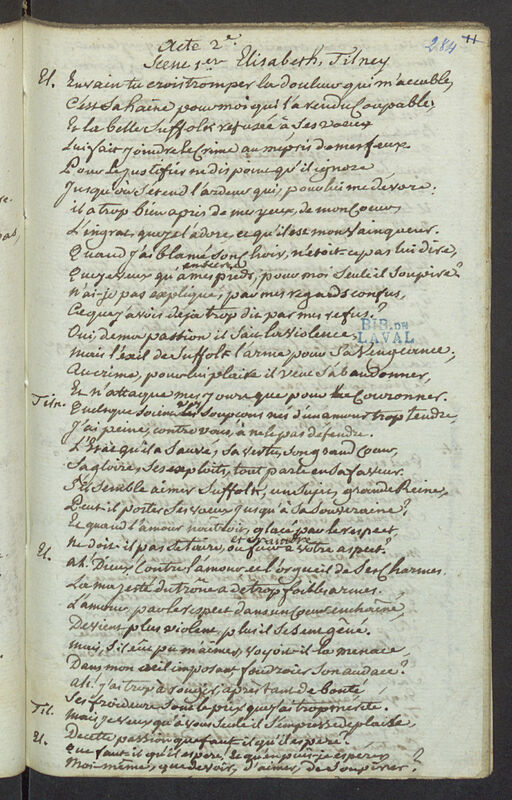 284 11
Acte 2e
Scene 1ere Elisabeth, Tilney
El. En vain tu crois tromper la douleur qui m'accable,
C'est sa haine pour moi qui l'a rendu Coupable;
Et la belle Suffolk refusée à ses voeux
Lui fait joindre le Crime au mepris de mes feux
Pour le justifier ne dis point qu'il ignore
Jusqu'où s'etend l'ardeur qui, pour lui me dévore.
il a trop bien apris de mes yeux, de mon Coeur,
L'ingrat, que je l'adore et qu'il est mon Vainqueur.
Quand j'ai blamé son Choix, n'etoit-ce pas lui dire,
Que je veux qu'à mes pieds, pour moi seule il soupire?
n'ai-je pas expliqué, par mes regards confus,
Ce que j'avois deja trop dit par mes refus?
Oui, de ma passion il sait la violence,
BIB. DE LAVAL
Mais l'exil de Suffolk l'arme pour sa vengeance;
Au crime, pour lui plaire il veut s'abandonner,
Et n'attaque mes jours que pour la Couronner.
Tiln. Quelque soient les Soupçons nés d'un amour trop tendre,
J'ai peine, contre vous, à ne le pas défendre.
L'Etat qu'il a Sauvé, sa vertu, son grand Coeur,
Sa gloire, ses exploits, tout parle en sa faveur.
S'il semble aimer Suffolk, un Sujet, grande Reine,
Peut-il porter ses voeux jusqu'à sa Souveraine?
Et quand l'amour naitroit, glacé par le respect,
et craindre
Ne doit-il pas se taire, ou fuir à votre aspect?
El. Ah. Dieux! Contre l'amour et l'orgueil de ses Charmes.
La majesté du trône a de trop foibles armes.
L'amour, par le respect dans un Coeur enchainé,
Devient plus violent, plus il se sent gêné.
mais, s'il eût pu m'aimer, voyoit-il la menace,
Dans mon oeil imposant, foudroier son audace?
ah! j'ai trop à rougir, après tant de bonté,
Ses froideurs sont le prix que j'ai trop merité.
Til. Mais je veux qu'à vous seule il s'empresse de plaire
De cette passion que faut-il qu'il espere?
El. Que faut-il qu'il espere, Et qu'en puis-je esperer
Moi-même, que de voir, d'aimer, de Soupirer?